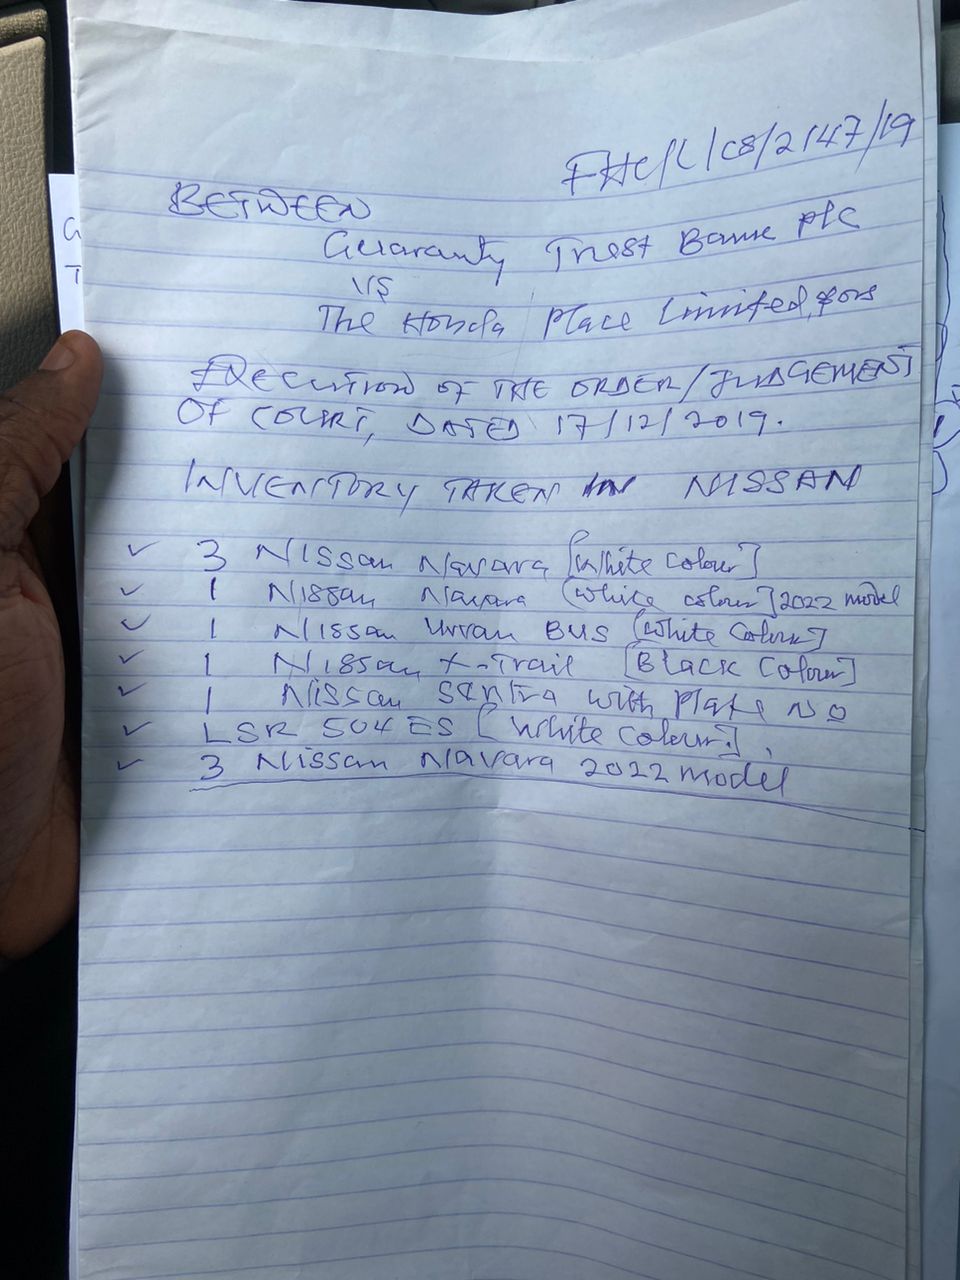 FHC/L/CS/2147/19
BETWEEN
Guaranty Trust Bank plc
VS
The Honda Place Limited, & ors
EXECUTION OF THE ORDER/JUDGEMENT
OF COURT, DATED 17/12/2019.
INVENTORY TAKEN IN NISSAN
✓ 3 Nissan Navara [White Colour]
✓ 1 Nissan Navara [White colour] 2022 model
✓ 1 Nissan Urvan BUS [White Colour]
✓ 1 Nissan X-Trail [Black Colour]
✓ 1 Nissan Sentra with Plate NO
✓ LSR 504 ES [White Colour].
✓ 3 Nissan Navara 2022 model